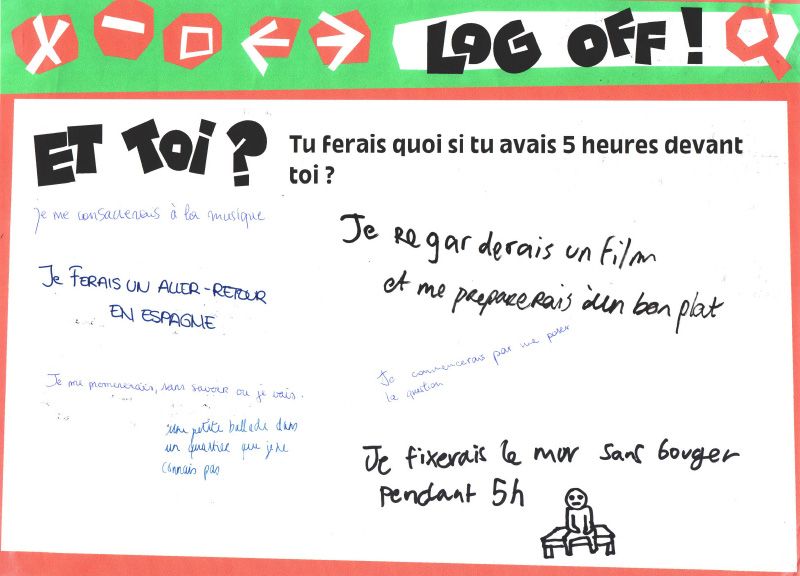 LOG OFF !
ET TOI ?
Tu ferais quoi si tu avais 5 heures devant
toi ?
Je me consacrerais à la musique
Je regarderais un film
et me preparerais un bon plat
JE FERAIS UN ALLER-RETOUR
EN ESPAGNE
Je commencerais par me poser
la question
Je me promenerais, sans savoir ou je vais.
une petite ballade dans
un quartier que je ne
connais pas
Je fixerais le mur sans bouger
pendant 5h